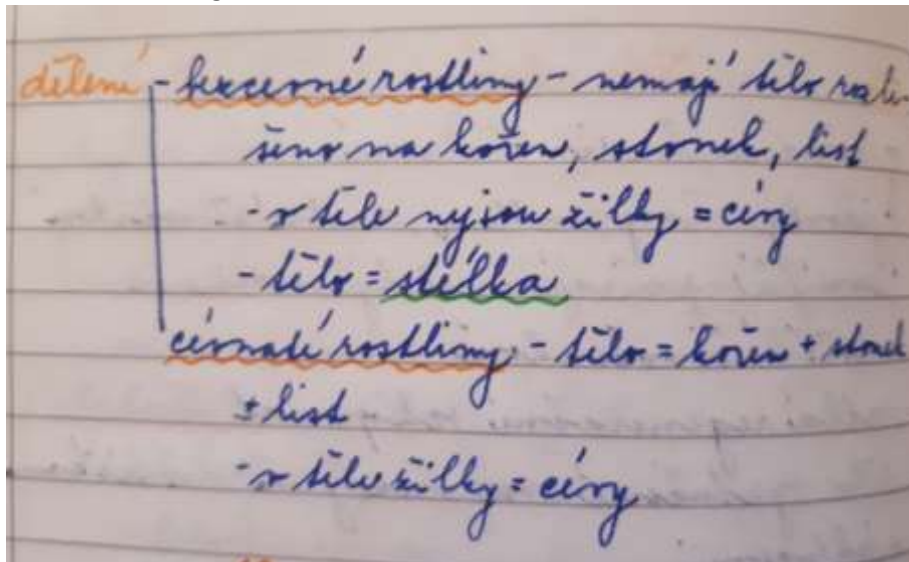 dělení - bezcevné rostliny - nemají tělo rozli-
šeno na kořen, stonek, list
- v těle nejsou žilky = cévy
- tělo = stélka
cévnaté rostliny - tělo = kořen + stonek
± list
- v těle žilky = cévy